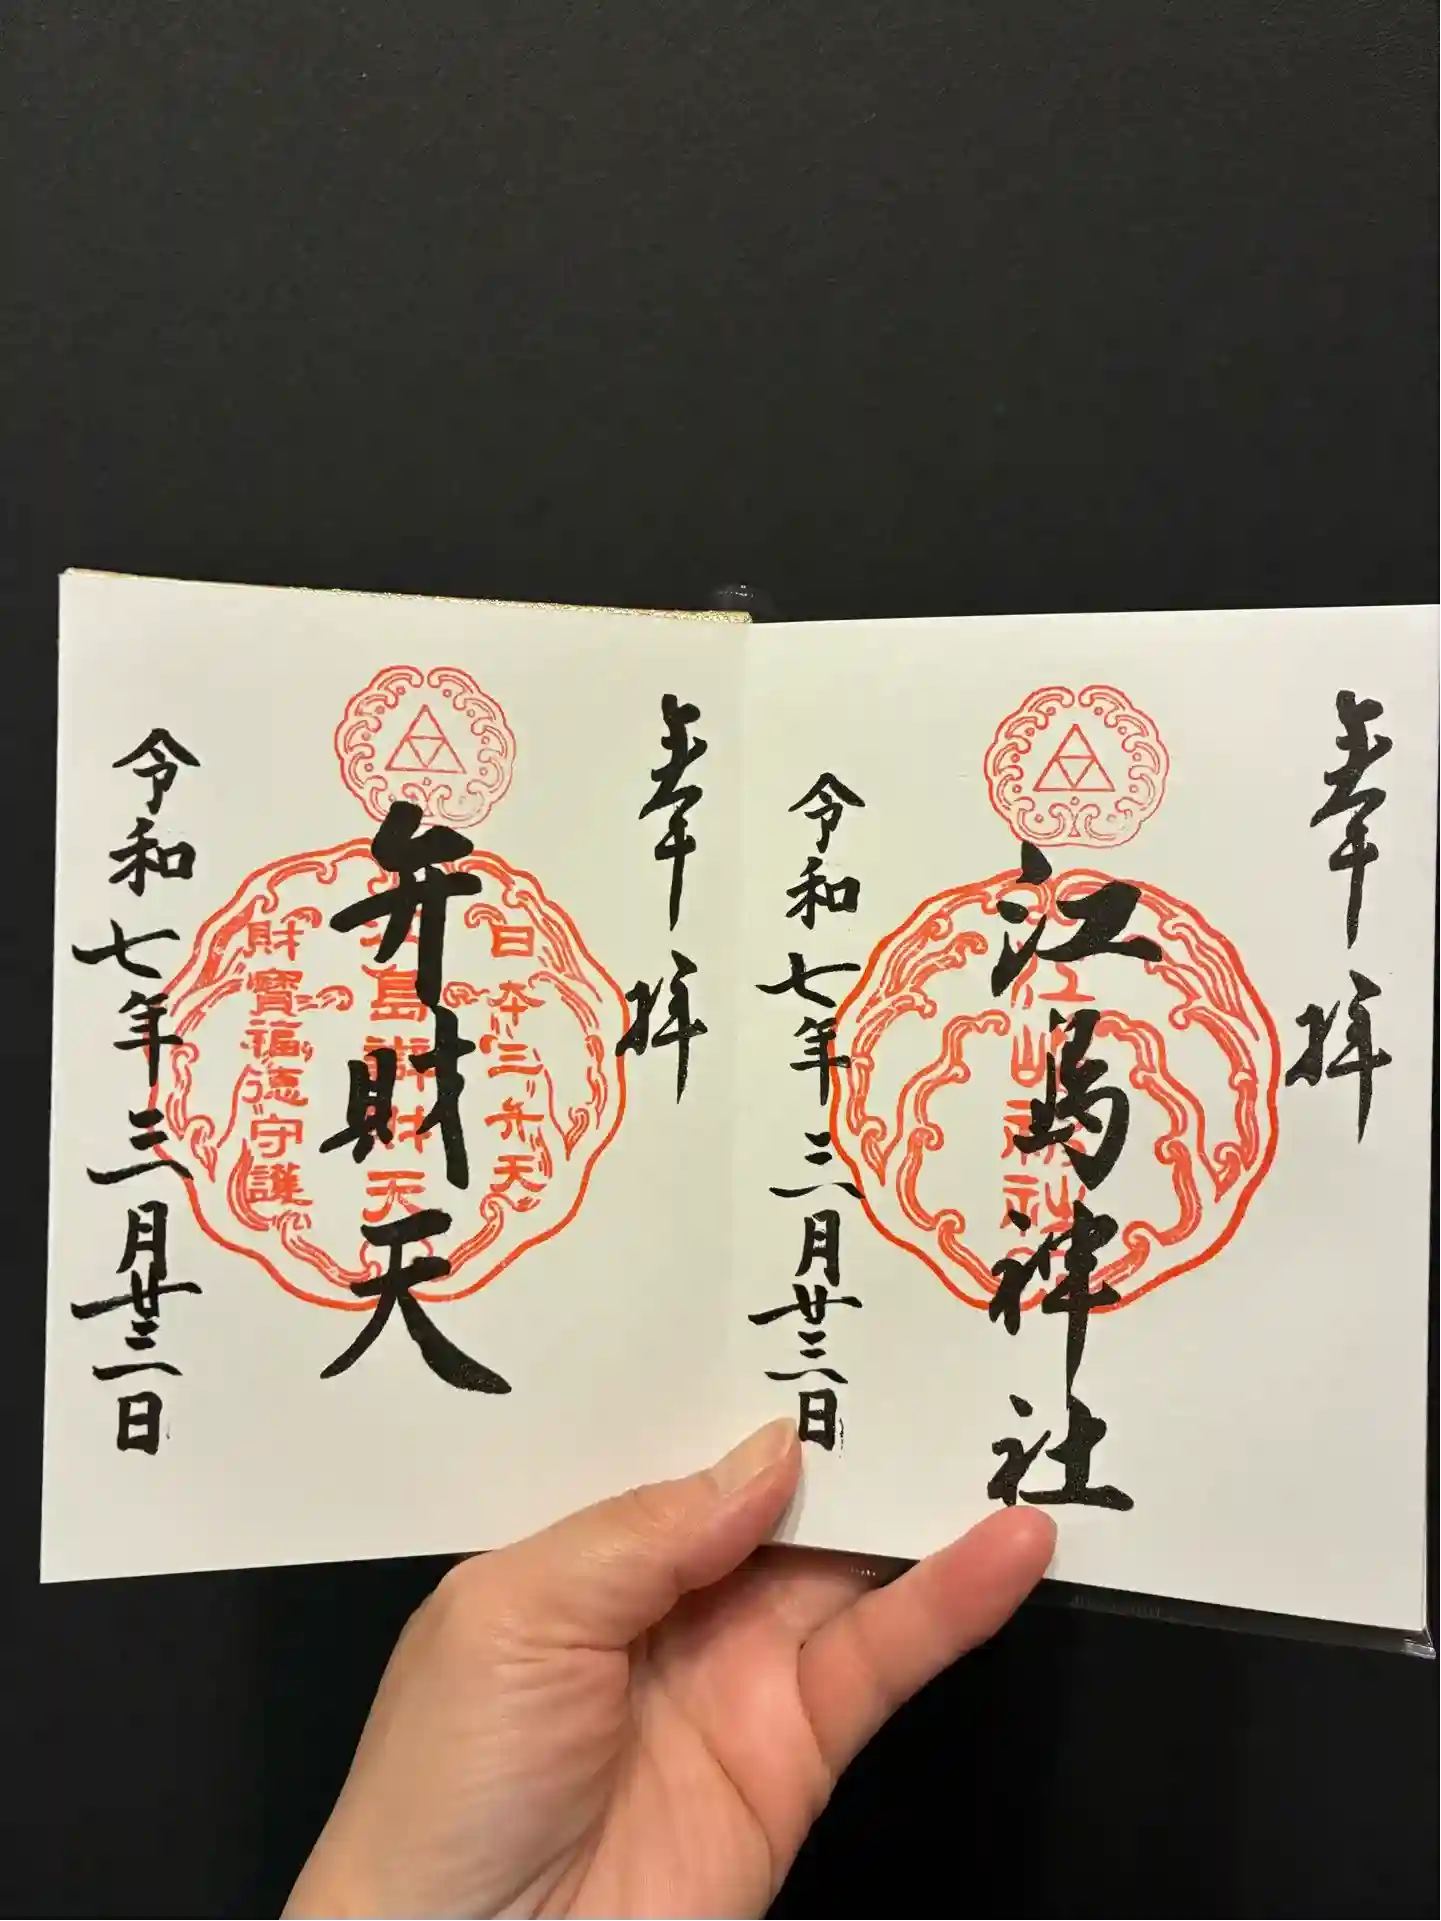 奉拝
江島神社
江島神社
令和七年三月廿三日
奉拝
弁財天
日本三弁天
江島辨財天
財寶福徳守護
令和七年三月廿三日